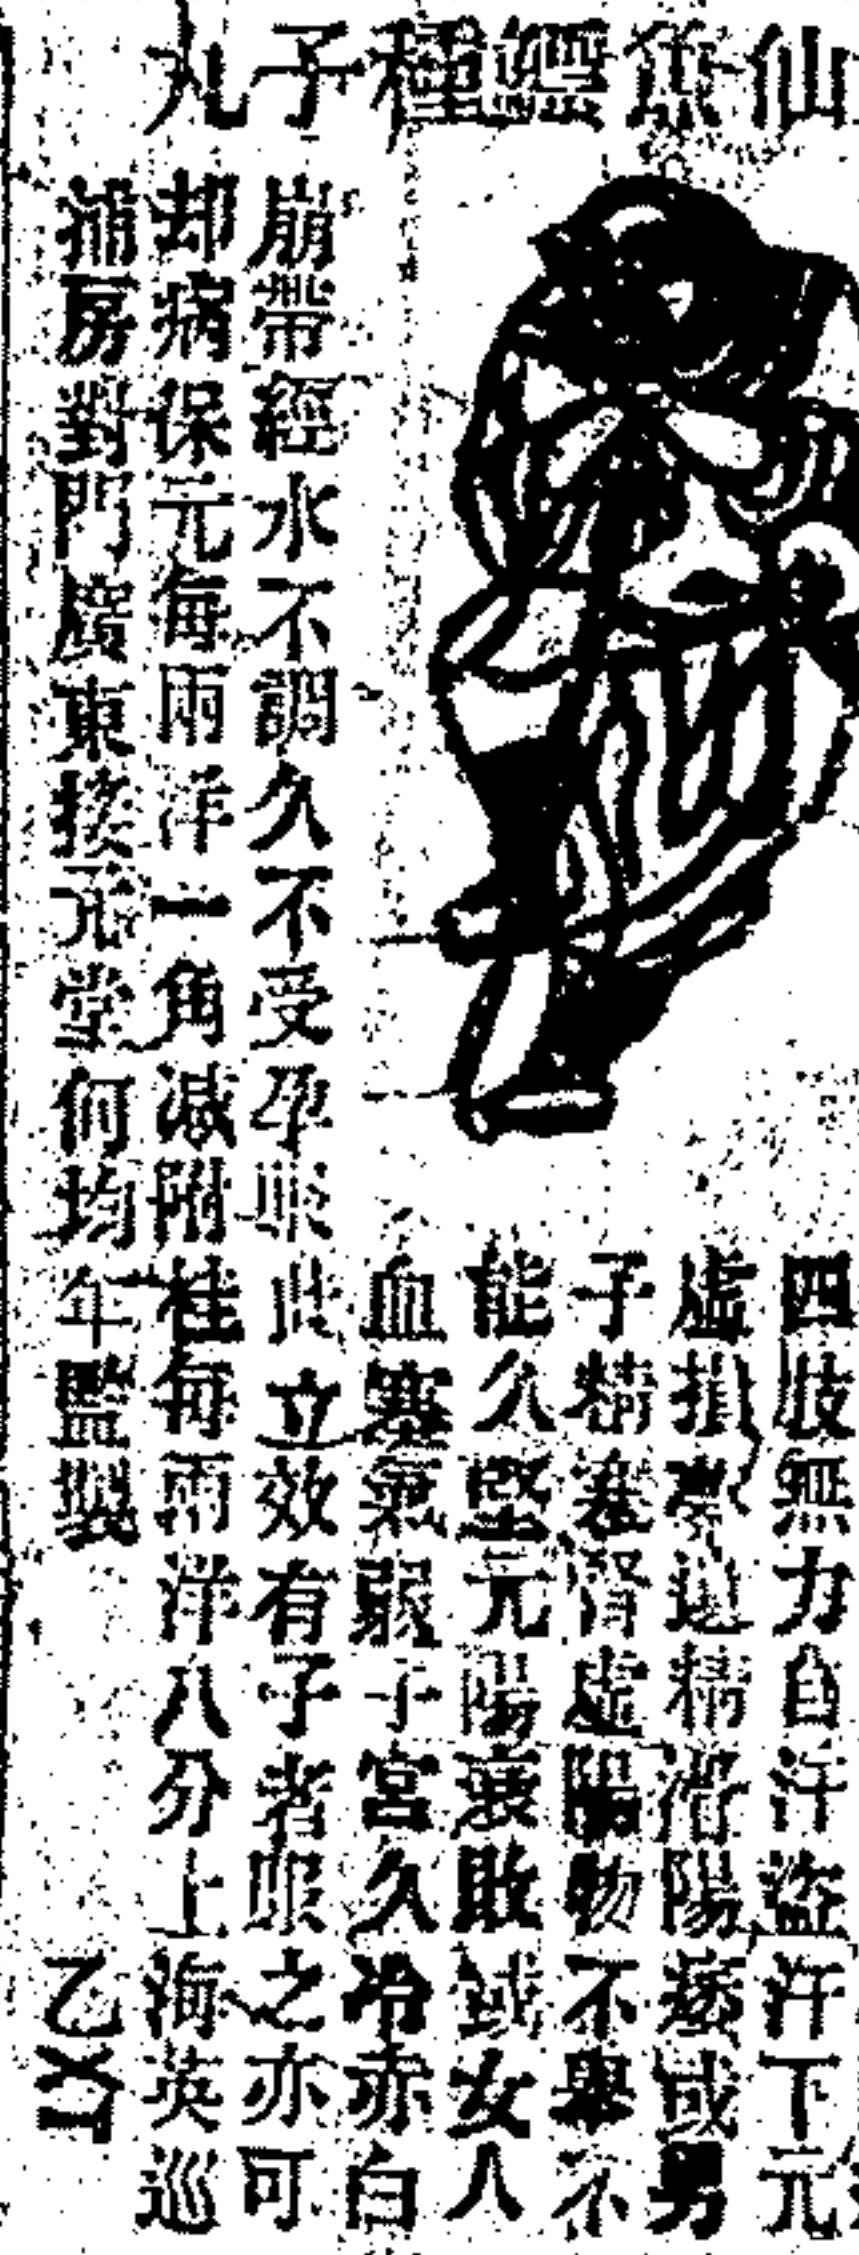 仙魚鰾種子丸
四肢無力自汗盜汗下元
虛損夢遺精滑陽痿或男
子精塞腎虛陽物不舉不
能久堅元陽衰敗或女人
血寒氣弱子宮久冷赤白
崩帶經水不調久不受孕服此立效有子者服之亦可
却病保元每兩洋一角減附桂每兩洋八分上海英巡
捕房對門廣東接元堂何均年監製
乙